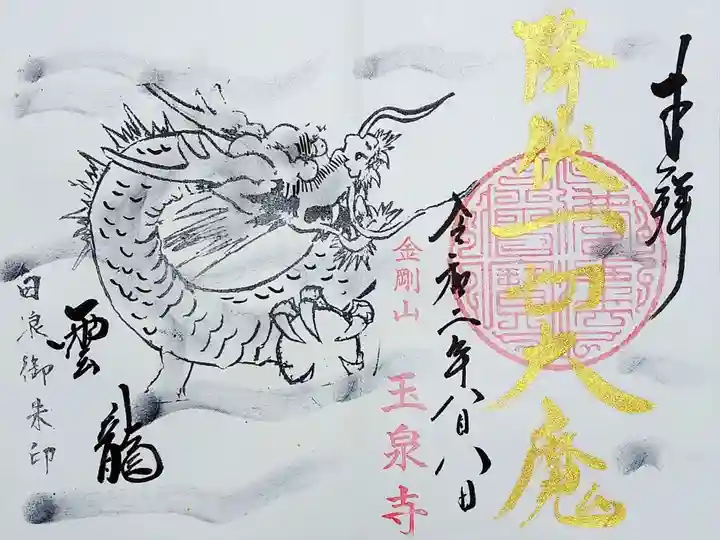 奉拜
降伏一切大魔
令和二年八月八日
金剛山
玉泉寺
雲龍
田浪御朱印